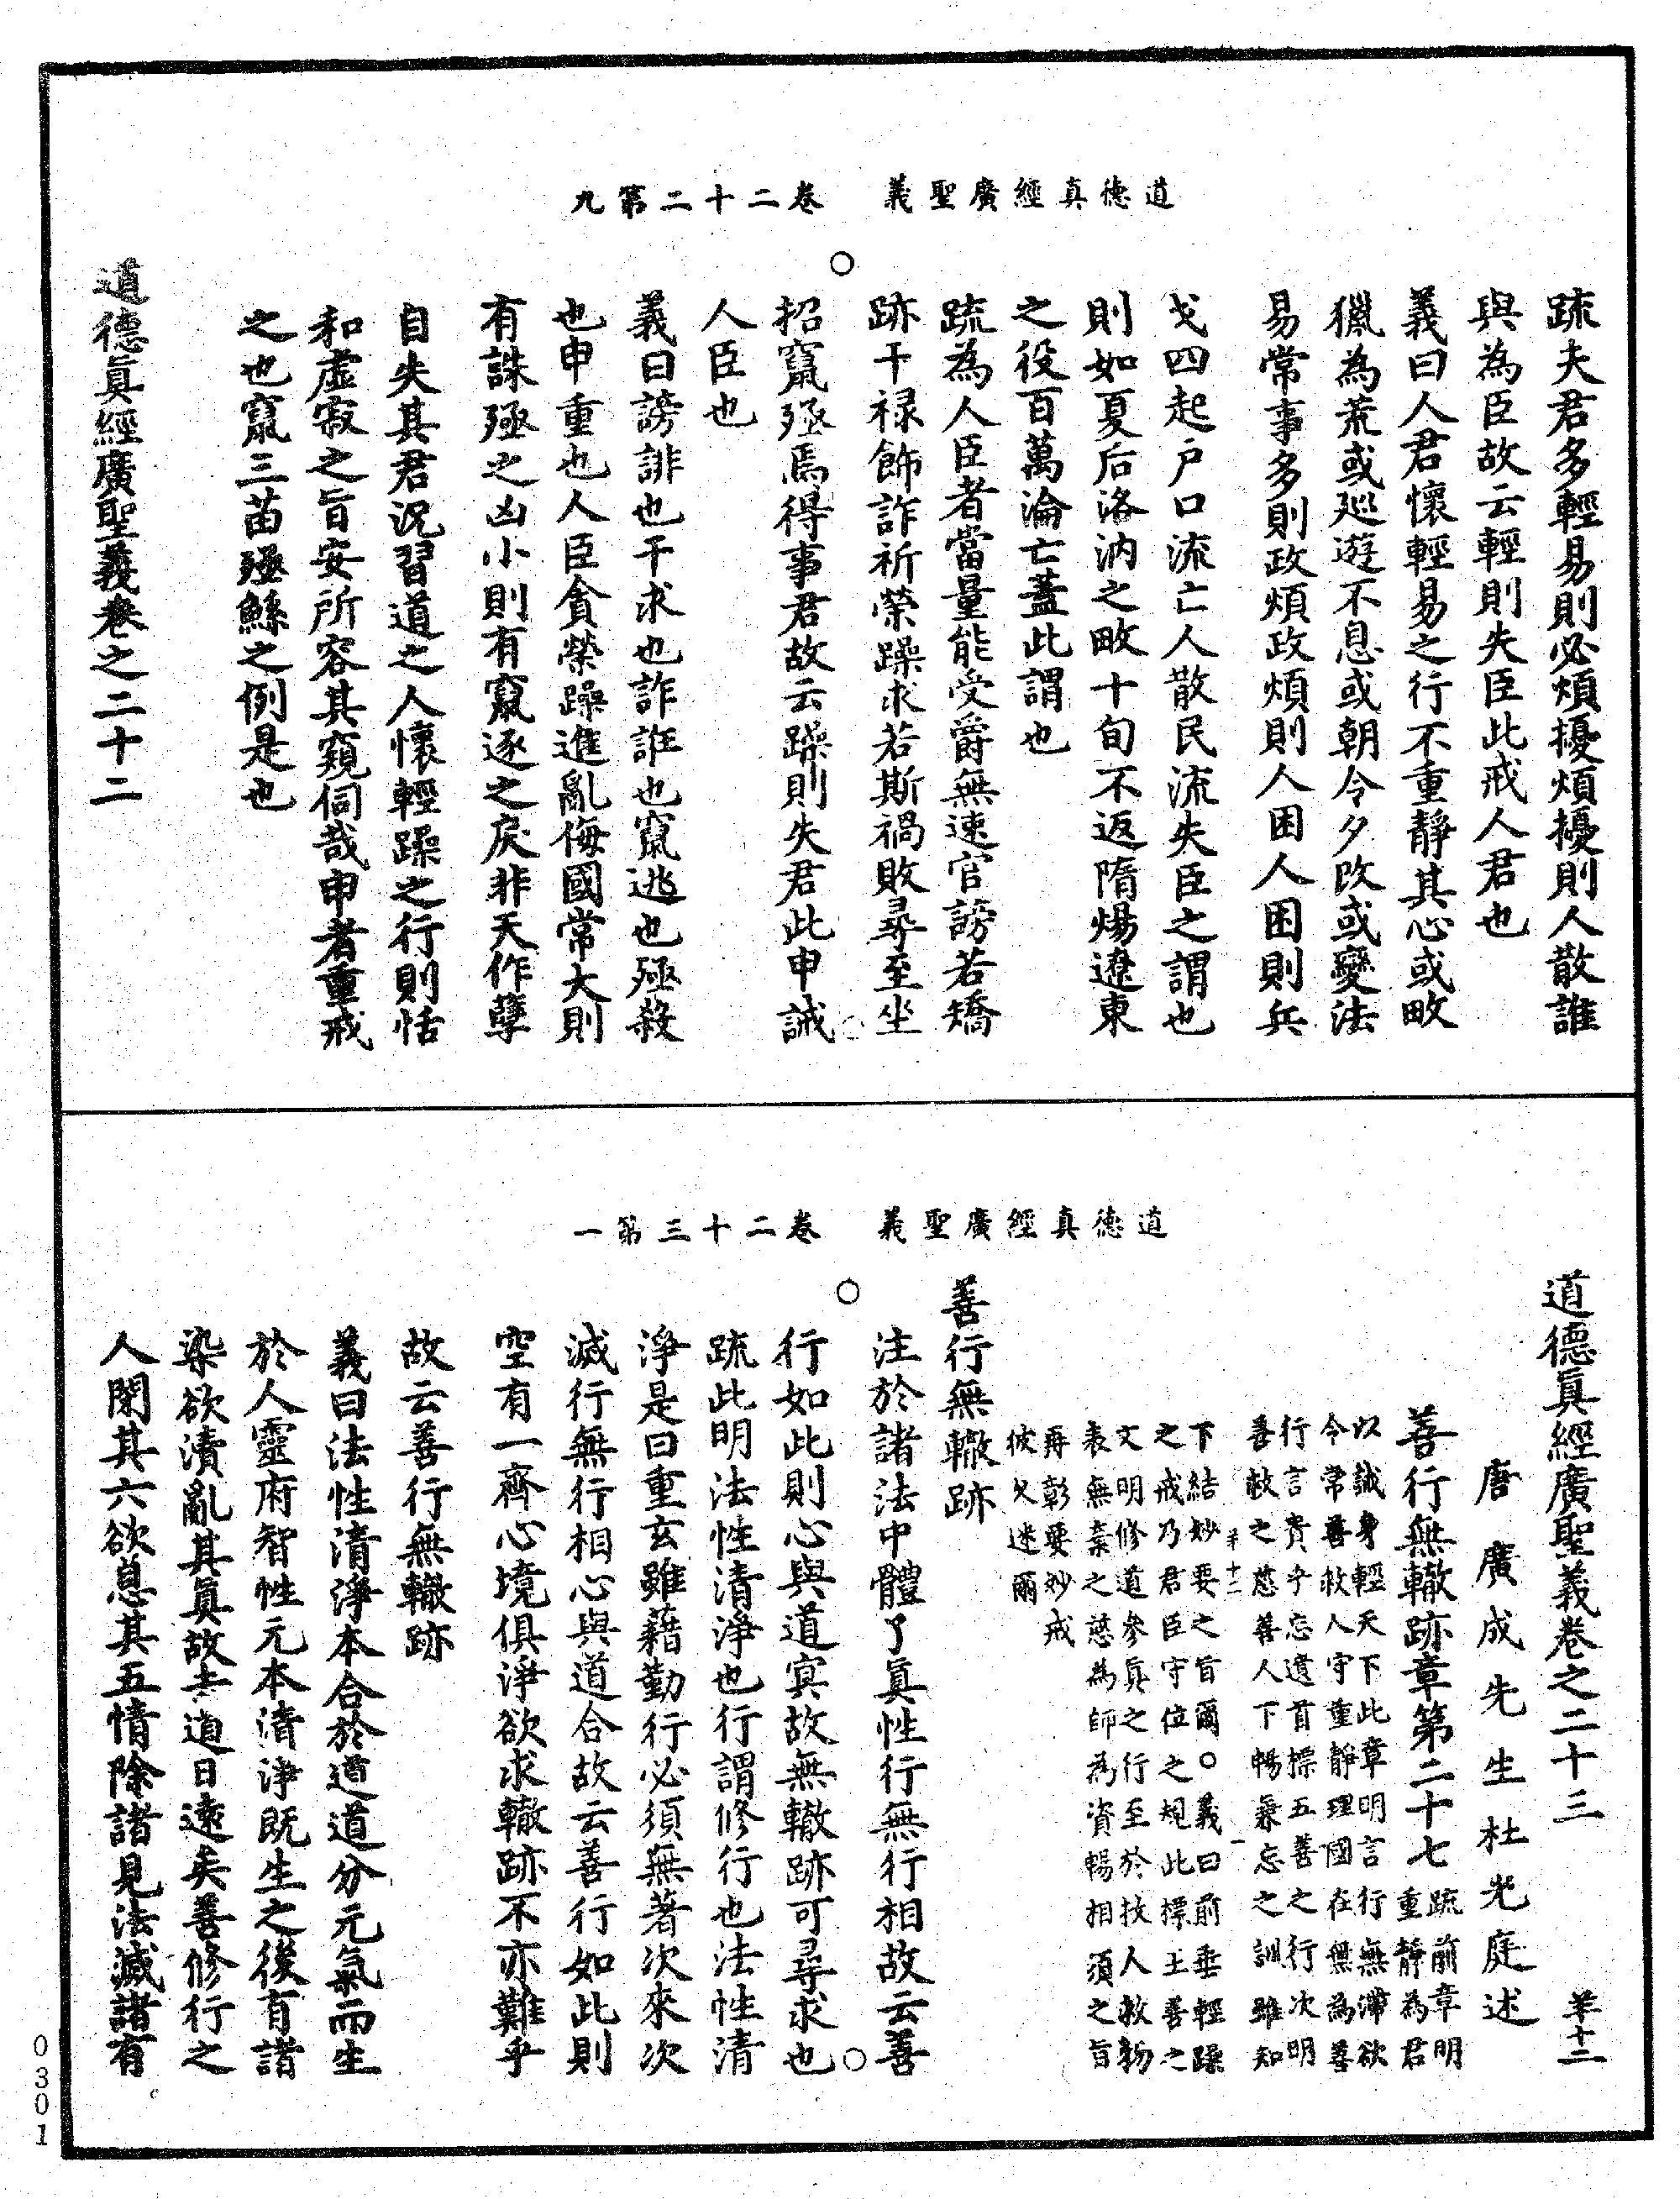 道德真經廣聖義　卷二十二第九
疏夫君多輕易則必煩擾煩擾則人散誰
與為臣故云輕則失臣此戒人君也
義曰人君懷輕易之行不重靜其心或畋
獵為荒或廵遊不息或朝令夕改或變法
易常事多則政煩政煩則人困人困則兵
戈四起户口流亡人散民流失臣之謂也
則如夏后洛汭之畋十旬不返隋煬遼東
之役百萬淪亡蓋此謂也
疏為人臣者當量能受爵無速官謗若矯
跡干禄飾詐祈榮躁求若斯禍敗尋至坐
招竄殛焉得事君故云躁則失君此申誡
人臣也
義曰謗誹也干求也詐誑也竄逃也殛殺
也申重也人臣貪榮躁進亂侮國常大則
有誅殛之凶小則有竄逐之戾非天作孽
自失其君況習道之人懷輕躁之行則恬
和虛寂之旨安所容其窺伺哉申者重戒
之也竄三苗殛鯀之例是也
道德眞經廣聖義卷之二十二
道德真經廣聖義　卷二十三第一
道德眞經廣聖義卷之二十三　羊十二
唐廣成先生杜光庭述
善行無轍跡章第二十七
疏前章明
重靜為君
以誡身輕天下此章明言行無滯欲
令常善救人守重靜理國在無為善
行言貴乎忘遣首標五善之行次明
善救之慈善人下暢兼忘之訓雖知
羊十二　一
下結妙要之旨爾○義曰前垂輕躁
之戒乃君臣守位之規此標王善之
文明修道參眞之行至於技人救物
表無棄之慈為師為資暢相須之旨
再彰要妙戒
彼大迷爾
善行無轍跡
注於諸法中體了眞性行無行相故云善
行如此則心與道冥故無轍跡可尋求也
疏此明法性清淨也行謂修行也法性清
淨是曰重玄雖藉勤行必須無著次來次
滅行無行相心與道合故云善行如此則
空有一齊心境俱淨欲求轍跡不亦難乎
故云善行無轍跡
義曰法性清淨本合於道道分元氣而生
於人靈府智性元本清淨既生之後有諸
染欲瀆亂其眞故去道日遠矣善修行之
人閉其六欲息其五情除諸見法滅諸有
0301